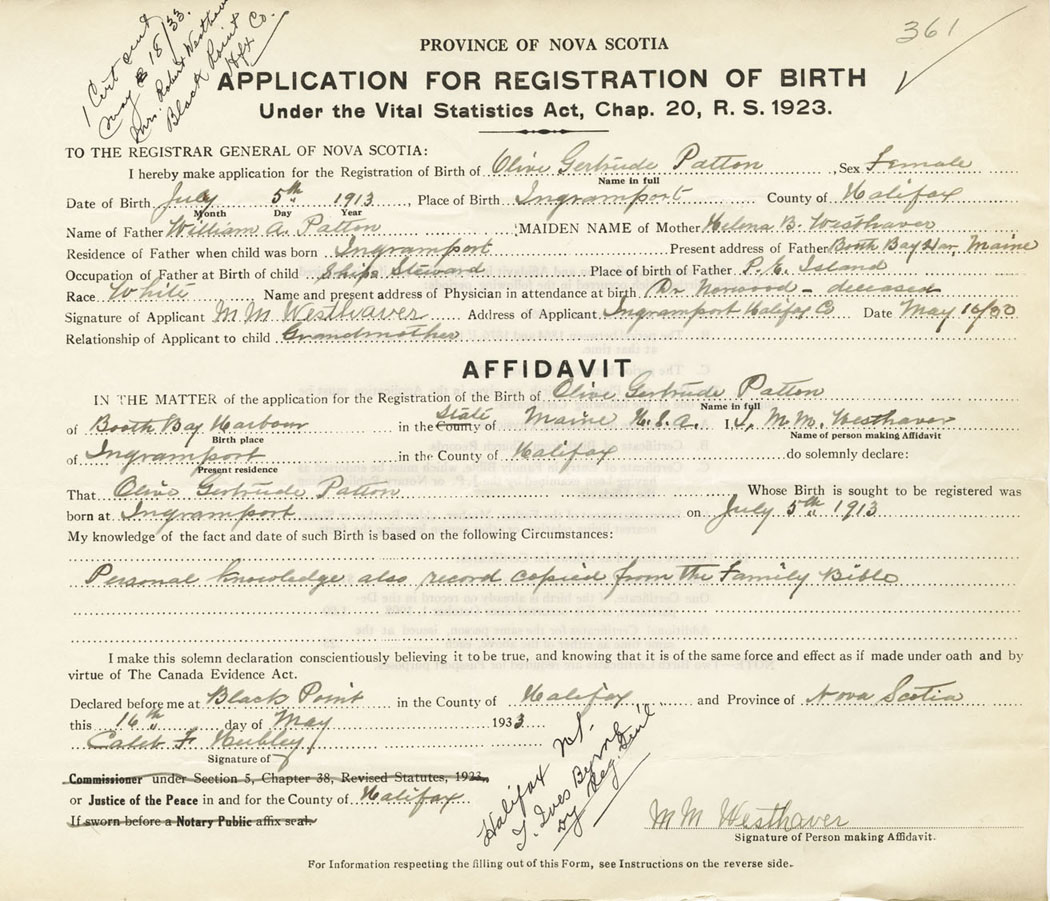 1 Cert sent
May 18/33.
Mrs. Robert Westhaver
Black Point
Hfx Co.
361
PROVINCE OF NOVA SCOTIA
APPLICATION FOR REGISTRATION OF BIRTH
Under the Vital Statistics Act, Chap. 20, R. S. 1923.
TO THE REGISTRAR GENERAL OF NOVA SCOTIA:
I hereby make application for the Registration of Birth of Olive Gertrude Patton, Sex Female
Name in full
Date of Birth July 5th 1913, Place of Birth Ingramport County of Halifax
Month Day Year
Name of Father William A. Patton MAIDEN NAME of Mother Helena B. Westhaver
Residence of Father when child was born Ingramport Present address of Father Booth Bay Har, Maine
Occupation of Father at Birth of child Ships Steward Place of birth of Father P. E. Island
Race White Name and present address of Physician in attendance at birth Dr Norwood - deceased
Signature of Applicant M M Westhaver Address of Applicant Ingramport Halifax Co Date May
Relationship of Applicant to child Grandmother
AFFIDAVIT
IN THE MATTER of the application for the Registration of the Birth of Olive Gertrude Patton
Name in full
of Booth Bay Harbour in the State County of Maine U.S.A. I, M. M. Westhaver
Birth place Name of person making Affidavit
of Ingramport in the County of Halifax do solemnly declare:
Present residence
That Olive Gertrude Patton Whose Birth is sought to be registered was
born at Ingramport on July 5th 1913
My knowledge of the fact and date of such Birth is based on the following Circumstances:
Personal knowledge also record copied from the Family Bible
I make this solemn declaration conscientiously believing it to be true, and knowing that it is of the same force and effect as if made under oath and by
virtue of The Canada Evidence Act.
Declared before me at Black Point in the County of Halifax and Province of Nova Scotia
this 16th day of May 1933
Caleb F
Signature of
Commissioner under Section 5, Chapter 38, Revised Statutes, 1923,
or Justice of the Peace in and for the County of Halifax
If sworn before a Notary Public affix seal.
Halifax NS.
T. Ives Byrne
Dy Reg. Gen'l
M M Westhaver
Signature of Person making Affidavit.
For Information respecting the filling out of this Form, see Instructions on the reverse side.